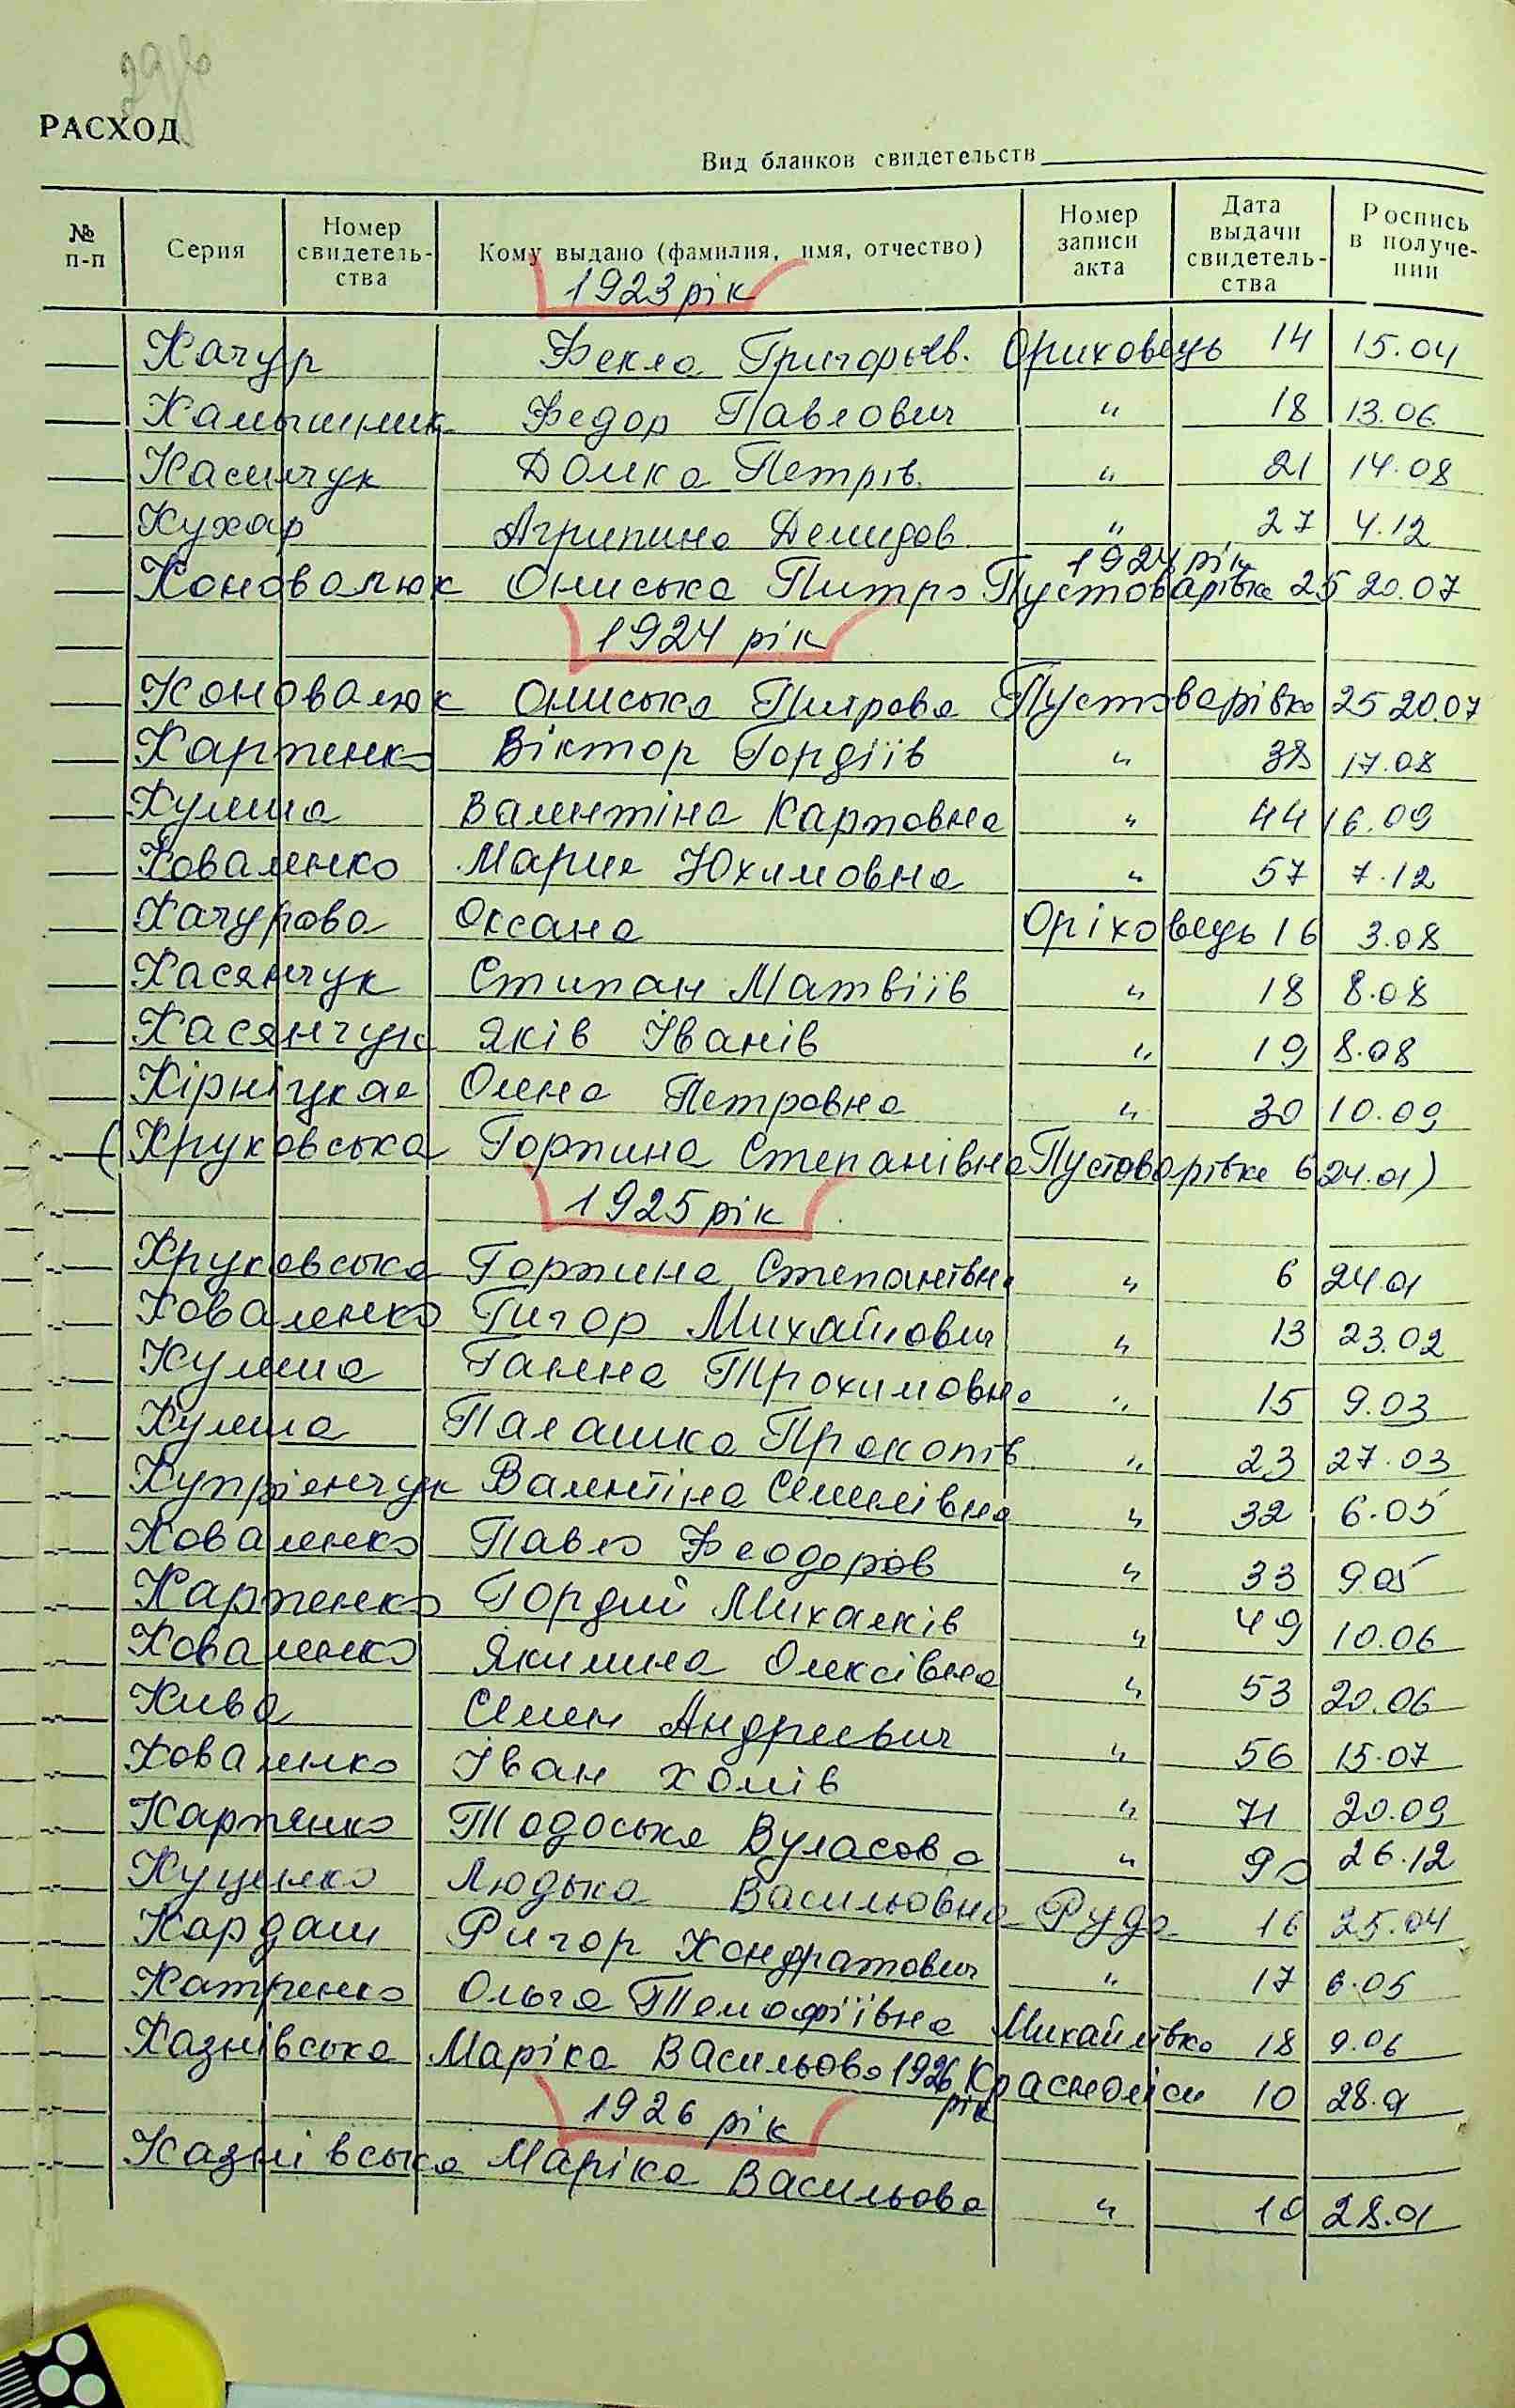 РАСХОД
Вид бланков свидетельств
№ п-п Серия Номер свидетель-ства Кому выдано (фамилия, имя, отчество) Номер записи акта Дата выдачи свидетель-ства Роспись в получе-нии
1923 рік
Качур Фекла Григорьев. Ориховець 14 15.04
Камышник Федор Павлович " 18 13.06
Касинчук Домка Петрів. " 21 14.08
Кухар Агрипина Демидов " 27 4.12
1924 рік
Коновалюк Ониська Питро Пустоварівка 25 20.07
1924 рік
Коновалюк Ониська Питрова Пустоварівка 25 20.07
Карпенко Віктор Гордіїв " 38 17.08
Кулиша Валентіна Карповна " 44 16.09
Коваленко Марие Юхимовна " 57 7.12
Качурова Оксана Оріховець 16 3.08
Касянчук Стипан Матвіїв " 18 8.08
Касянчук Яків Іванів " 19 8.08
Олена Петровна " 30 10.09
(Круковська Горпина Степанівна Пустоварівка 6 24.01)
1925 рік
Круковська Горпина Степанівна " 6 24.01
Коваленко Гигор Михайлович " 13 23.02
Кулиша Ганна Трохимовна " 15 9.03
Кулиша Палашка Прокопів " 23 27.03
Купріенчук Валентіна Семенівна " 32 6.05
Коваленко Павло Феодоров " 33 9.05
Карпенко Гордий Михалків " 49 10.06
Коваленко Якилина Олексівна " 53 20.06
Кива Семен Андреевич " 56 15.07
Коваленко Іван Хомів " 71 20.09
Карпенко Тодоська Вуласова " 90 26.12
Куценко Людька Васильовна Руда 16 25.04
Кардаш Ригор Кондратович " 17 6.05
Катренко Ольга Темофіївна Михайлівка 18 9.06
Казнівська Маріка Васильова 1926 рік Красноліси 10 28.01
1926 рік
Казнівська Маріка Васильова " 10 28.01